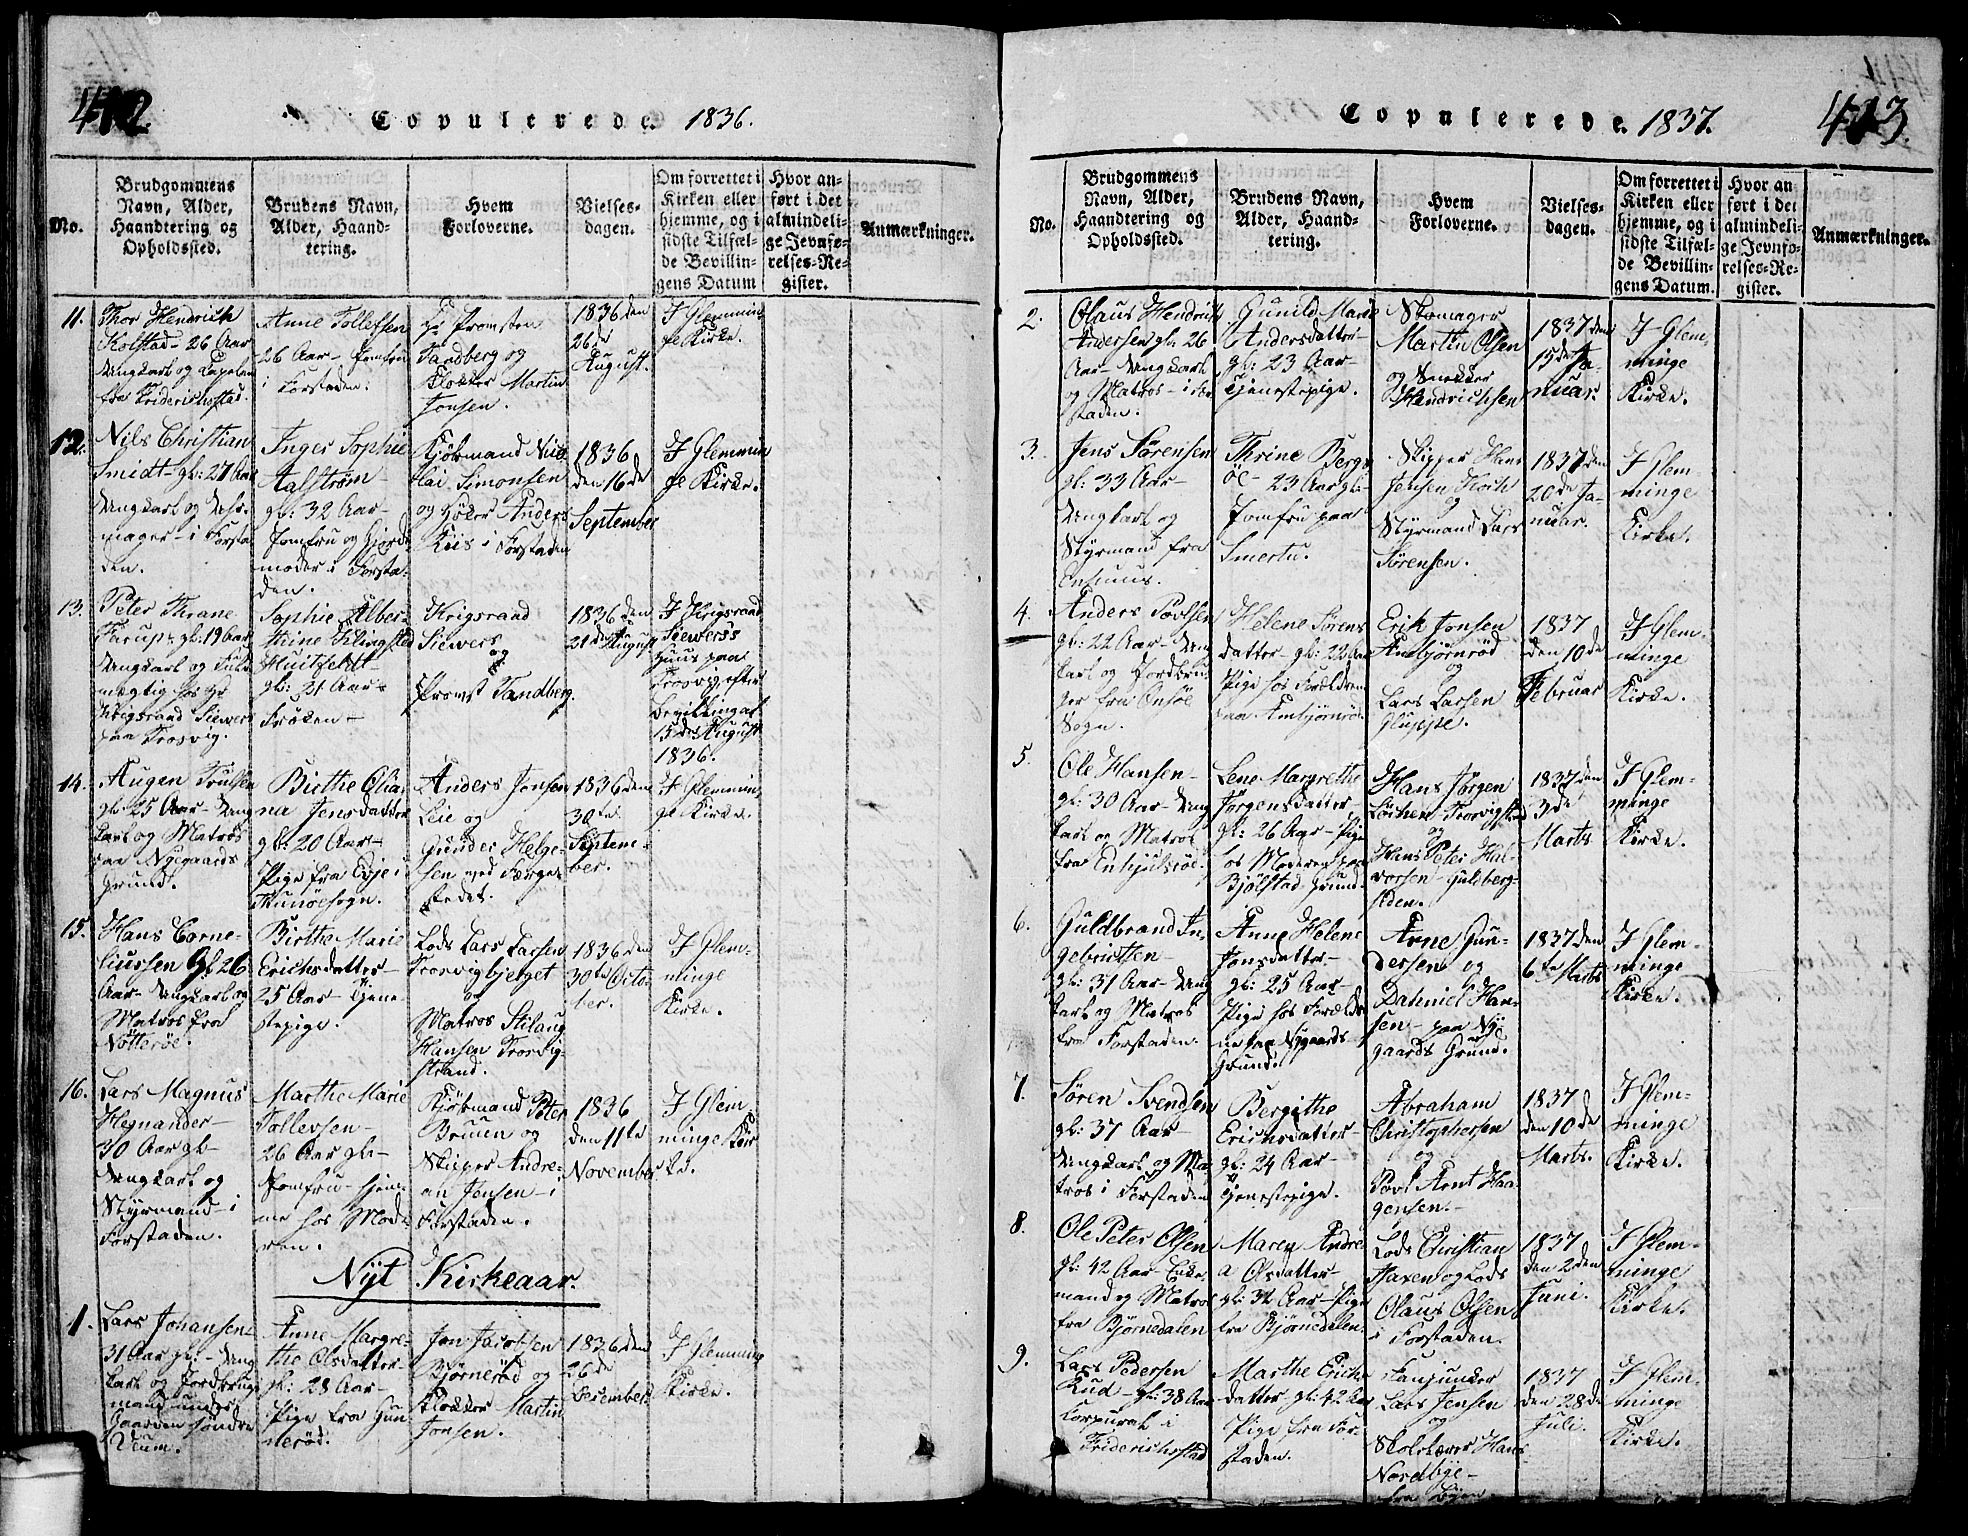 412.
Copulerede. 1836.
No.
Brudgommens
Navn, Alder,
Haandtering og
Opholdssted.
Brudens Navn,
Alder, Haand-
tering.
Hvem
Forloverne.
Vielses-
dagen.
Om forrettet i
Kirken eller
hjemme, og i
sidste Tilfæl-
de Bevillin-
gens Datum
Hvor an-
ført i det
almindeli-
ge Jevnfø-
relses-Re-
gister.
Anmærkninger.
11.
Thor Hendrich
Kolstad - 26 Aar
Ungkarl og
fra Friderichstad.
Anne Tollefsen
26 Aar - Jomfru
i Forstaden.
Hr Provsten
Tandberg og
Klokker Martin
Jonsen.
1836 den
26de
August.
I Glemmin,
ge Kirke.
12.
Nils Christian
Smidt - gl: 27 Aar
Ungkarl og
mager - i Forsta
den.
Inger Sophie
Aalstrøm -
gl: 32 Aar -
Jomfru og Gjorde
moder i Forsta-
den.
Kjøbmand Nico
lai Simonsen
og Høker Anders
Kiis i Forstaden
1836
den 16de
September
I Glemmin
ge Kirke.
13.
Peter Thrane
Faarup - gl: 19 Aar
Ungkarl og Fuld-
mægtig hos Hr
Krigsraad Siewers
paa Trosvig.
Sophie Alber-
thine Klingsted
Huitfeldt -
gl: 21 Aar -
Frøken -
Krigsraad
Siewers
og
Provst Tandberg.
1836 den
21de August
I Krigsraad
Siewers's
Huus paa
Trosvig efter
Bevilling af
15de August
1836.
14.
Augen Trulsen
gl: 25 Aar - Ung
karl og Matros
paa Nygaards
Grund.
Birthe Olia-
na Jensdatter
gl: 20 Aar -
Pige fra Evje i
Thunøe sogn.
Anders Jonsen
Leie og
Gunder Helge-
sen ved Færge-
stedet.
1836 den
30te
Septem-
ber.
I Glemmin,
ge Kirke.
15.
Hans Corne-
liussen Gl 26
Aar - Ungkarl og
Matros fra
Nøtterøe.
Birthe Marie
Erichsdatter -
25 Aar - Tjene-
stepige.
Lods Lars Larsen
Trosvigbjerget
og
Matros Stilaug
Hansen Trosvig-
strand.
1836 den
30te Octo-
ber.
I Glem-
minge
Kirke.
16.
Lars Magnus
Hegnander -
30 Aar gl -
Ungkarl og
Styrmand - i
Forstaden.
Marthe Marie
Tollevsen -
26 Aar gl: -
Jomfru - hjem-
me hos Mode-
ren.
Kjøbmand Peter
Bruun og
Skipper Andre-
as Jensen - i
Forstaden.
1836
den 11te
November
I Glem
minge Kir
ke.
Nyt Kirkeaar.
1.
Lars Johansen -
31 Aar gl: - Ung
karl og Jordbrugs
mand under
Gaarden søndre
Veum.
Anne Margre-
the Olsdatter -
gl: 28 Aar -
Pige fra Gun
nerød.
Jon Jacobsen
Bjørnerød og
Klokker Martin
Jonsen.
1836 den
26de
December.
I Glemming
Kirke.
Copulerede. 1837.
413.
No.
Brudgommens
Navn, Alder,
Haandtering og
Opholdssted.
Brudens Navn,
Alder, Haand-
tering.
Hvem
Forloverne.
Vielses-
dagen.
Om forrettet i
Kirken eller
hjemme, og i
sidste Tilfæl-
de Bevillin-
gens Datum.
Hvor an
ført i det
almindeli-
ge Jevnfø-
relses-Re-
gister.
Anmærkninger.
2.
Olaus Hendrich
Andersen gl: 26
Aar - Ungkarl
og Matros - i For
staden.
Gunild Marie
Andersdatter -
gl: 23 Aar -
Tjenestepige.
Skomager
Martin Olsen
og Snekker
Hendrichsen
1837 den
15de Ja-
nuar.
I Glem,
minge
Kirke.
3.
Jens Sørensen
gl: 33 Aar -
Ungkarl og
Styrmand fra
Thrine Berg-
øe - 23 Aar gl: -
Jomfru paa
Smertu.
Skipper Hans
Jensen Koch
og
Styrmand Lars
Sørensen.
1837 den
20de Ja-
nuar.
I Glem-
minge
Kirke.
4.
Anders Povlsen
gl: 22 Aar - Ung
karl og Jordbru-
ger fra Onsøe
Sogn.
Helene Sørens
datter - gl: 22 Aar
Pige hos Forældrene
paa Ambjørnrød.
Erik Jonsen
Ambjørnrød
og
Lars Larsen
Gluppe.
1837
den 10de
Februar
I Glem-
minge
Kirke.
5.
Ole Hansen -
gl: 30 Aar - Ung
karl og Matros
fra Enhjulsrød.
Lene Margrethe
Jørgensdatter
gl: 26 Aar - Pige
hos Moderen paa
Bjølstad Grund.
Hans Jørgen
Løchen - Trosvigstrand
og
Hans Peter Hal-
vorsen - Guldberg-
siden.
1837 den
3de
Marts.
I Glem-
minge
Kirke.
6.
Guldbrand In-
gebrigtsen -
gl: 31 Aar - Ung
karl og Matros
fra Forstaden.
Anne Helene
Jonsdatter -
gl: 25 Aar -
Pige hos Foræld-
rene paa Nygaards
Grund.
Arne Gun-
dersen og
Dahniel Han-
sen - paa Ny-
gaards Grund.
1837 den
6te Marts
I Glem-
minge
Kirke.
7.
Søren Svendsen
gl: 37 Aar -
Ungkarl og Ma-
tros i Forstaden
Bergithe
Erichsdatter
gl: 24 Aar -
Tjenestepige.
Abraham
Christophersen
og
Povl Arnt Haa-
gensen. -
1837
den 10de
Marts.
I Glem-
minge
Kirke.
8.
Ole Peter Olsen
gl: 42 Aar - Enke
mand og Matros
fra Bjørnedalen
Maren Andre
a Olsdatter -
gl: 32 Aar - Pige
fra Bjørnedalen.
Lods Christian
Haxen og Lods
Olaus Olsen
i Forstaden.
1837
den 2den
Juni.
I Glem-
minge
Kirke.
9.
Lars Pedersen
Rud - gl: 38 Aar
Korporal i
Friderichstad
Marthe Erichs
datter - gl: 42 Aar
Pige fra For-
staden.
Fanjunker
Lars Jensen
og
Skolelærer Hans
Nordbye -
fra Byen
1837
den 28de
Juli.
I Glem-
minge
Kirke.